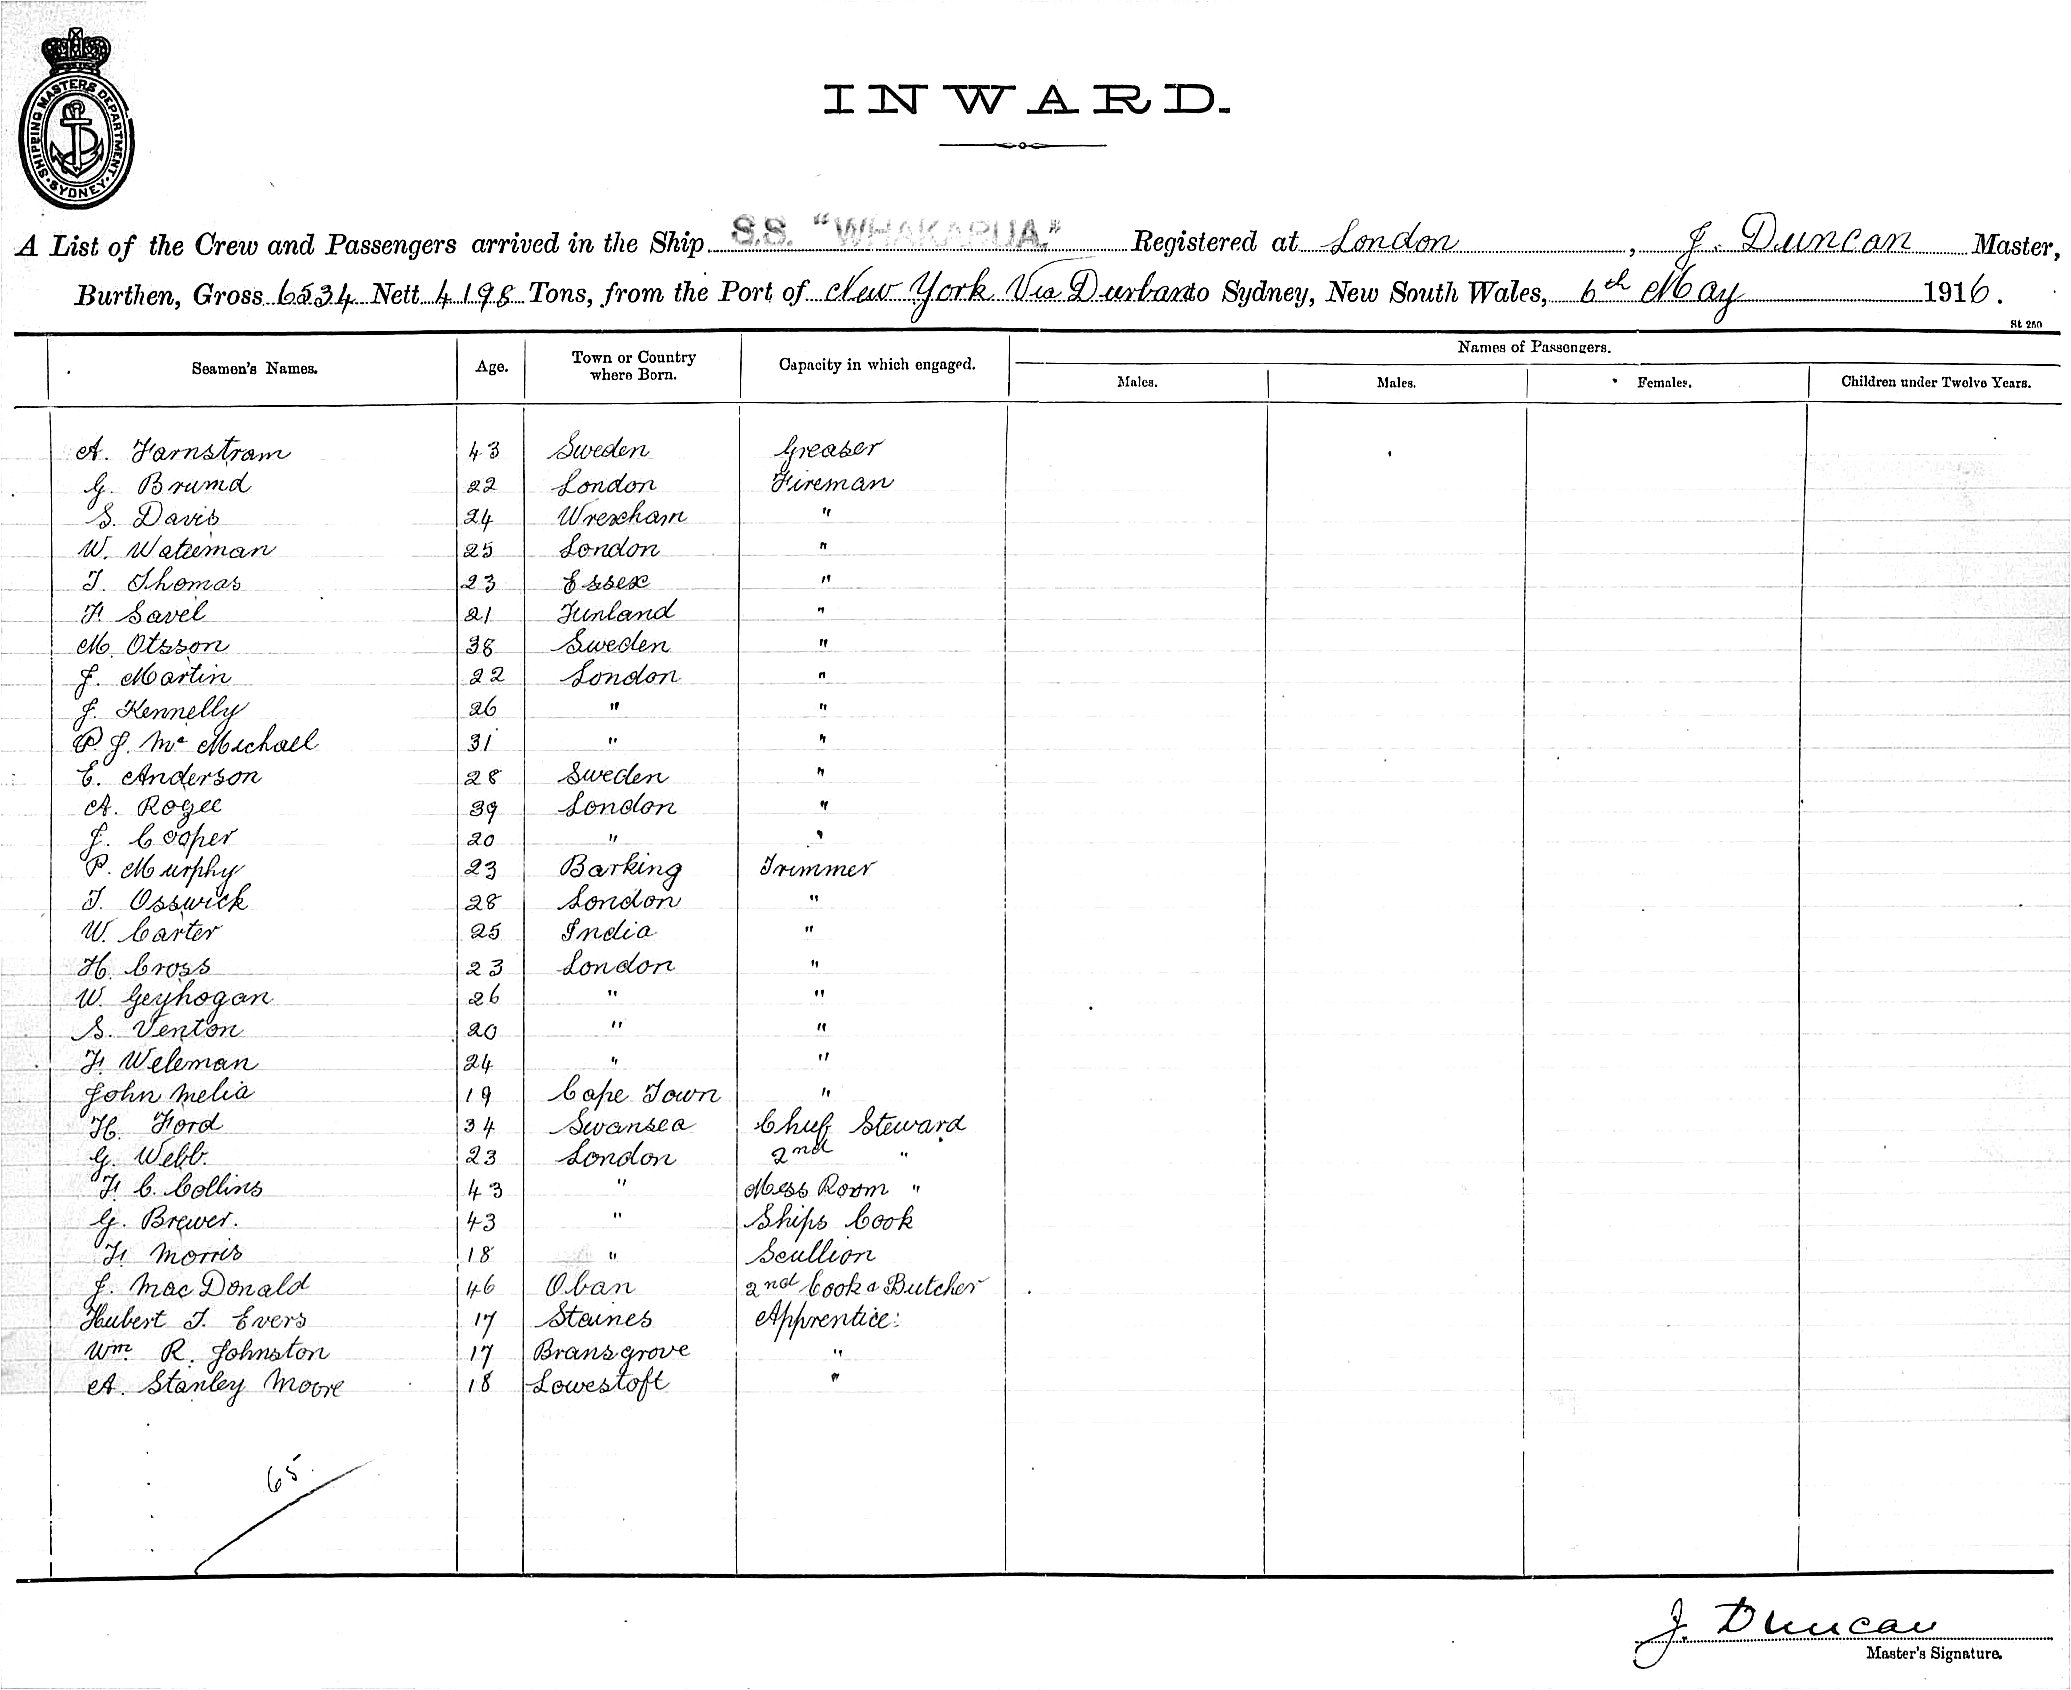 SHIPPING MASTERS DEPARTMENT. SYDNEY
INWARD.
A List of the Crew and Passengers arrived in the Ship S.S. "WHAKARUA." Registered at London, J. Duncan Master,
Burthen, Gross 6534 Nett 4198 Tons, from the Port of New York Via Durban to Sydney, New South Wales, 6th May 1916.
St 250
Seamen's Names. Age. Town or Country where Born. Capacity in which engaged. Names of Passengers.
Males. Males. Females. Children under Twelve Years.
A. Farnstram 43 Sweden Greaser
G. Brumd 22 London Fireman
S. Davis 24 Wrexham "
W. Wateman 25 London "
T. Thomas 23 Essex "
F. Savel 21 Finland "
M. Otsson 38 Sweden "
J. Martin 22 London "
J. Kennelly 26 " "
P. J. Mc Michael 31 " "
E. Anderson 28 Sweden "
A. Rogee 39 London "
J. Cooper 20 " "
P. Murphy 23 Barking Trimmer
T. Osswick 28 London "
W. Carter 25 India "
H. Cross 23 London "
W. Geyhogan 26 " "
S. Venton 20 " "
F. Weleman 24 " "
John Melia 19 Cape Town "
H. Ford 34 Swansea Chief Steward
G. Webb. 23 London 2nd "
F. C. Collins 43 " Mess Room "
G. Brewer. 43 " Ships Cook
F. Morris 18 " Scullion
J. MacDonald 46 Oban 2nd Cook & Butcher
Hubert T. Evers 17 Staines Apprentice:
Wm. R. Johnston 17 Bransgrove "
A. Stanley Moore 18 Lowestoft "
65.
J. Duncan
Master's Signature.